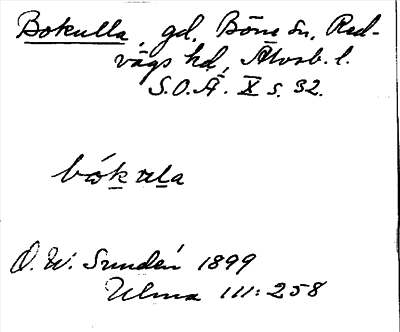 Bokulla, gd, Böne sn, Red-
vägs hd, Älvsb. l.
S.O.Ä. X s. 32.
bókula
D. W. Sundén 1899
Ulma III: 258